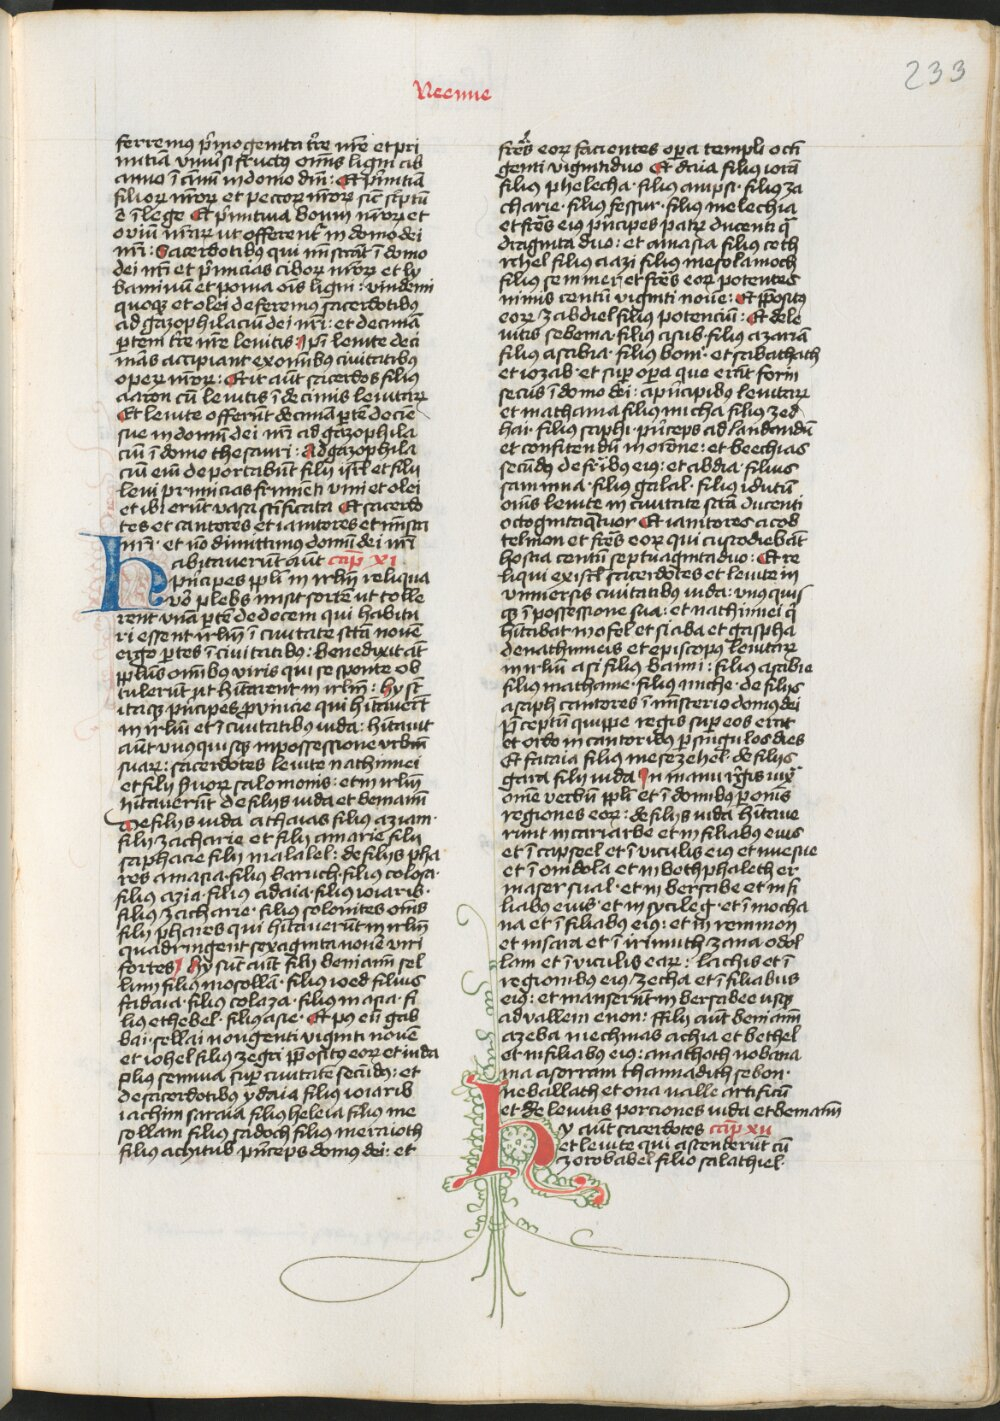 233
Neemie
ferremus p̄mogenita t̄re nr̄e et pri
mitiā vniūsi fructus om̄is ligni ab
anno ī annū in domo dn̄i: Et p̄mitiā
filioꝝ nr̄oꝝ et pecoꝝ nr̄oꝝ sic̄ sc̄ptū
ē ī lege Et p̄mitiua boum nr̄oꝝ et
oviū nr̄aꝝ ut offerent᷑ in domo dei
nr̄i: Sacerdotibꝰ qui mīstrāt ī domo
dei nr̄i et p̄micias ciboꝝ nr̄oꝝ et ly
baminū et poma oīs ligni: vindemi
quoqꝫ et olei deferemus sacerdotibꝰ
ad gazophilaciū dei nr̄i: et decimā
ꝑtem t̄re nr̄e leuitis: Ip̄i leuite deci
mās accipiant ex om̄ibꝰ ciuitatibꝰ
opeꝝ nr̄oꝝ: Erit aūt sacerdos filius
aaron cū leuitis ī decimis leuitaꝝ
Et leuite offerūt decimā ꝑtē decie
sue in domū dei nr̄i ad gazophila
ciū ī domo thesauri: Ad gazophila
ciū em̄ deportabūt filii isrl̄ et filii
leui primicias frumēti vini et olei
et ibi erūt vasa sc̄ificata Et sacerdo
tes et cantores et ianitores et mīstri
nr̄i: et nō dimittimus domū dei nr̄i
habitauerūt aūt cap̄ xi
p̄ncipes ppl̄i in irlm̄ reliqua
vō plebs misit sortē ut tolle
rent vnā ꝑtē de decem qui habitu
ri essent irlm̄ ī ciuitate sc̄tā nouē
ergo ꝑtes ī ciuitatibꝰ: benedixit āt
ppl̄us om̄ibꝰ viris qui se sponte ob
tulerūt ut h̄itarent in irlm̄: hy st̄
itaqꝫ p̄ncipes ꝓuincie qui h̄itauert̄
in irlm̄ et ī ciuitatibꝰ iuda: h̄itauit
aūt vnusquisqꝫ in possessione vrbiū
suaꝝ: sacerdotes leuite nathinnei
et filii ẜuoꝝ salomonis: et in irlm̄
h̄itauerūt de filijs iuda et beniamī
De filijs iuda athaias filius aziam·
filii zacharie et filii amarie filii
saphacie filii malalel: de filijs pha
res amasia· filius baruch· filius colosa·
filius azia· filius adaia· filius ioiarib·
filius zacharie· filius solonites om̄s
filii phares qui h̄itauerūt in irlm̄
quadringent sexaginta nouē viri
fortes hy sunt aūt filii beniamī sel
lum filius mosollā· filius ioed filius
fadaia· filius colaza· filius masia· fi
lius ethehel· filius asie· Et pꝰ eū gab
bai· sellai nongenti viginti nouē
et iohel filius zegri p̄positus eoꝝ et iuda
filius sennua sup̄ ciuitatē secūdꝰ: et
de sacerdotibꝰ ydaia filius ioiarib
iachim saraia filius helcia filius me
sollam filius sadoch filius meraioth
filius achitub p̄nceps domus dei: et
frēs eoꝝ facientes oꝑa templi octi
genti vigintiduo Et adaia filius iorā
filius phelecha· filius ampsi· filius za
charie· filius fessur· filius melechia
et frēs eius p̄ncipes patꝝ ducenti q̄
draginta duo: et amasia filius ceth
rihel filius aazi filius mesolamoch
filius semmer et frēs eoꝝ potentes
nimis centū viginti nouē: Et p̄positꝰ
eoꝝ zabdiel filius potenciū: Et de le
uitis sebenia· filius asub· filius azariā
filius asabia· filius boni· et sabathath
et iozab· et suꝑ oꝑa que erāt forin
secus ī domo dei: a p̄ncipibꝰ leuitaꝝ
et mathania filius micha filius zeb
hai· filius saphi· p̄nceps ad laudandū
et confitendū in orōne: et becchias
secūdꝰ de fr̄ibꝰ eius: et abdia· filius
sammua· filius galal· filius idutū
om̄s leuite in ciuitate sc̄tā ducenti
octogintaq̄tuor Et ianitores acob
telmon et frēs eoꝝ qui custodiebāt
hostia centū septuagintaduo: Et re
liqui ex isrl̄ sacerdotes et leuite in
vniuersis ciuitatibꝰ iuda: vnusquis
qꝫ ī possessione sua: et nathinnei q̄
h̄itabāt in ofel et siaba et gaspha
de nathinneis et episcopꝰ leuitaꝝ
in irlm̄ asi filius banni: filius asabie
filius mathanie· filius miche· de filijs
asaph cantores ī misterio domus dei
p̄ceptū quippe regis suꝑ eos erat
et ordo in cantoribꝰ ꝑ singulos dies
Et fataia filius mesezehel· de filijs
zara filii iuda In manu r̄gis iux̄
om̄e verbū ppl̄i et ī domibꝰ ꝑ om̄s
regiones eoꝝ: de filijs iuda h̄itaue
runt in cariarbe et in filiabꝰ eius
et ī capseel et ī viculis eius et in iesue
et ī molada et in bethphaleth et
in aser sual· et in bersabe et in fi
liabꝰ eius· et in syceleg· et ī mocha
na et ī filiabꝰ eius: et in remmon
et in sara et ī irimuth zana odol
lam et ī viculis eaꝝ: lachis et ī
regionibꝰ eius zecha et ī filiabus
eius: et manserūt in bersabee usqꝫ
ad vallem enon: ffilii aūt beniamī
azeba mechmas achia et bethel
et in filiabꝰ eius: anathoth nobana
nia asorram thannadith sebon·
neballath et ona valle artificū
et De leuitis porciones iuda et beniamī
hy aūt sacerdotes cap̄ xii
et leuite qui ascenderūt cū
zorobabel filio salathiel·